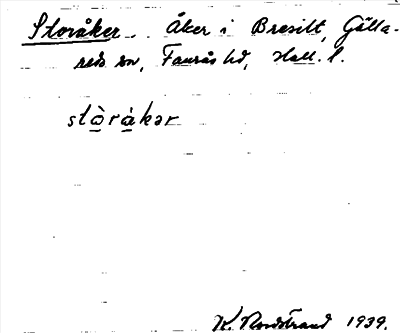 Storåker. Åker i Bresilt, Gälla-
reds sn, Faurås hd, Hall. l.
stòråkər
K. Nordstrand 1939.